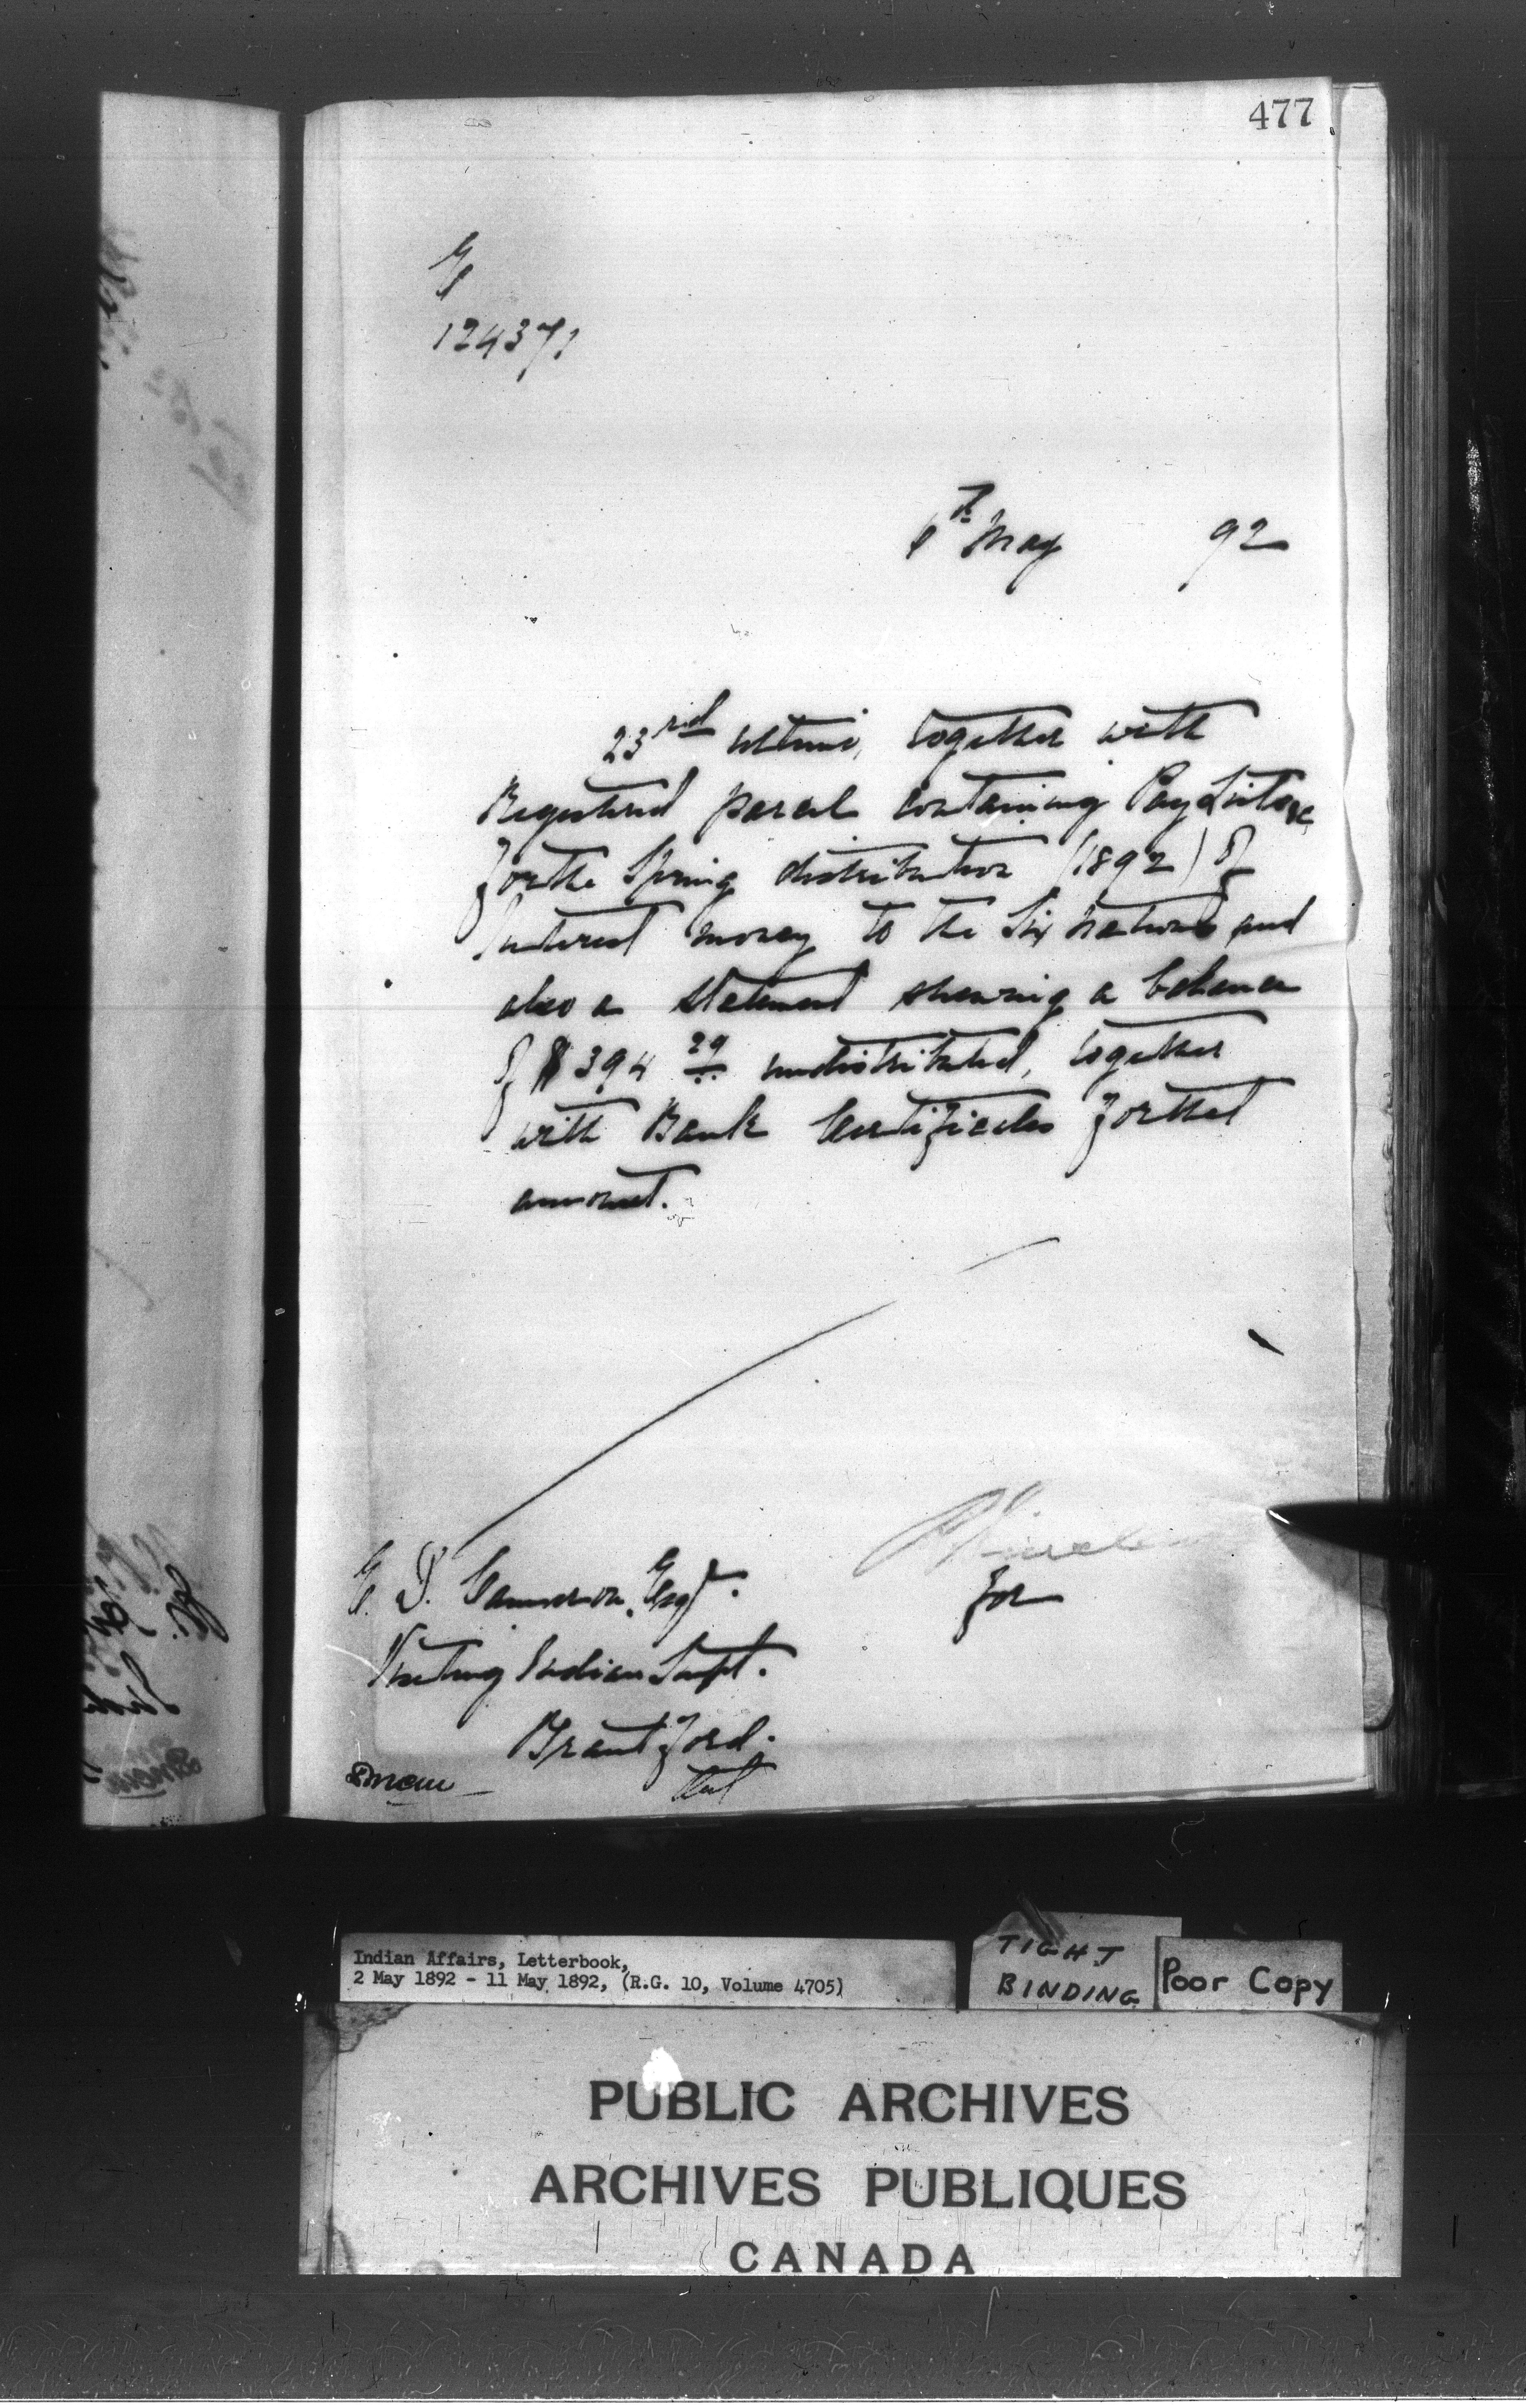 477
124371
6th May 92
23rd ultimo, together with
Registered parcel containing Pay Lists &c
for the Spring distribution (1892) of
Interest money to the Six Nations and
also a statement shewing a balance
of $394 29 undistributed, together
with Bank Certificates for that
amount.
E. D. Cameron, Esqr.
for
Visiting Indian Supt.
Brantford.
Ont
Indian Affairs, Letterbook,
2 May 1892 - 11 May 1892, (R.G. 10, Volume 4705)
TIGHT
BINDING
Poor Copy
PUBLIC ARCHIVES
ARCHIVES PUBLIQUES
CANADA